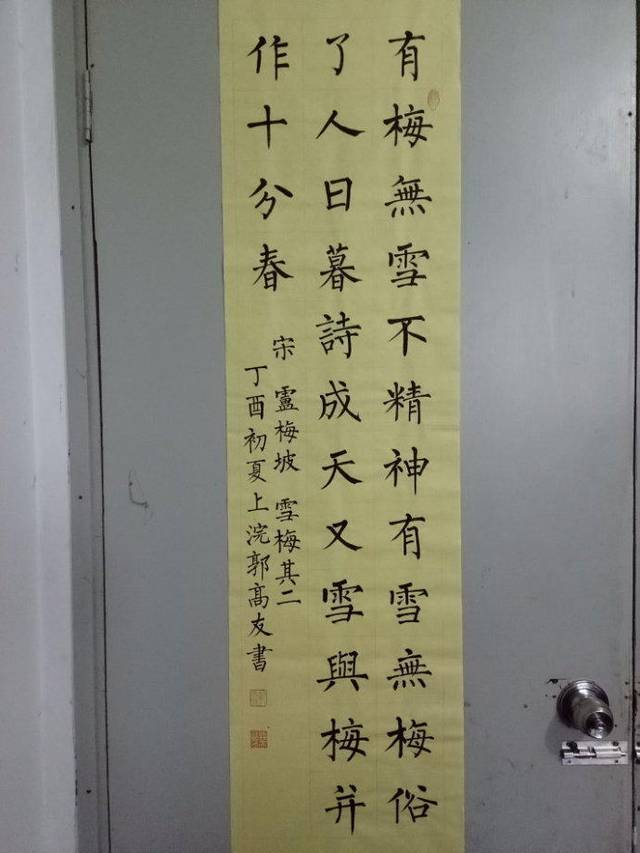 有梅無雪不精神有雪無梅俗
了人日暮詩成天又雪與梅并
作十分春
宋 盧梅坡 雪梅其二
丁酉初夏上浣郭高友書